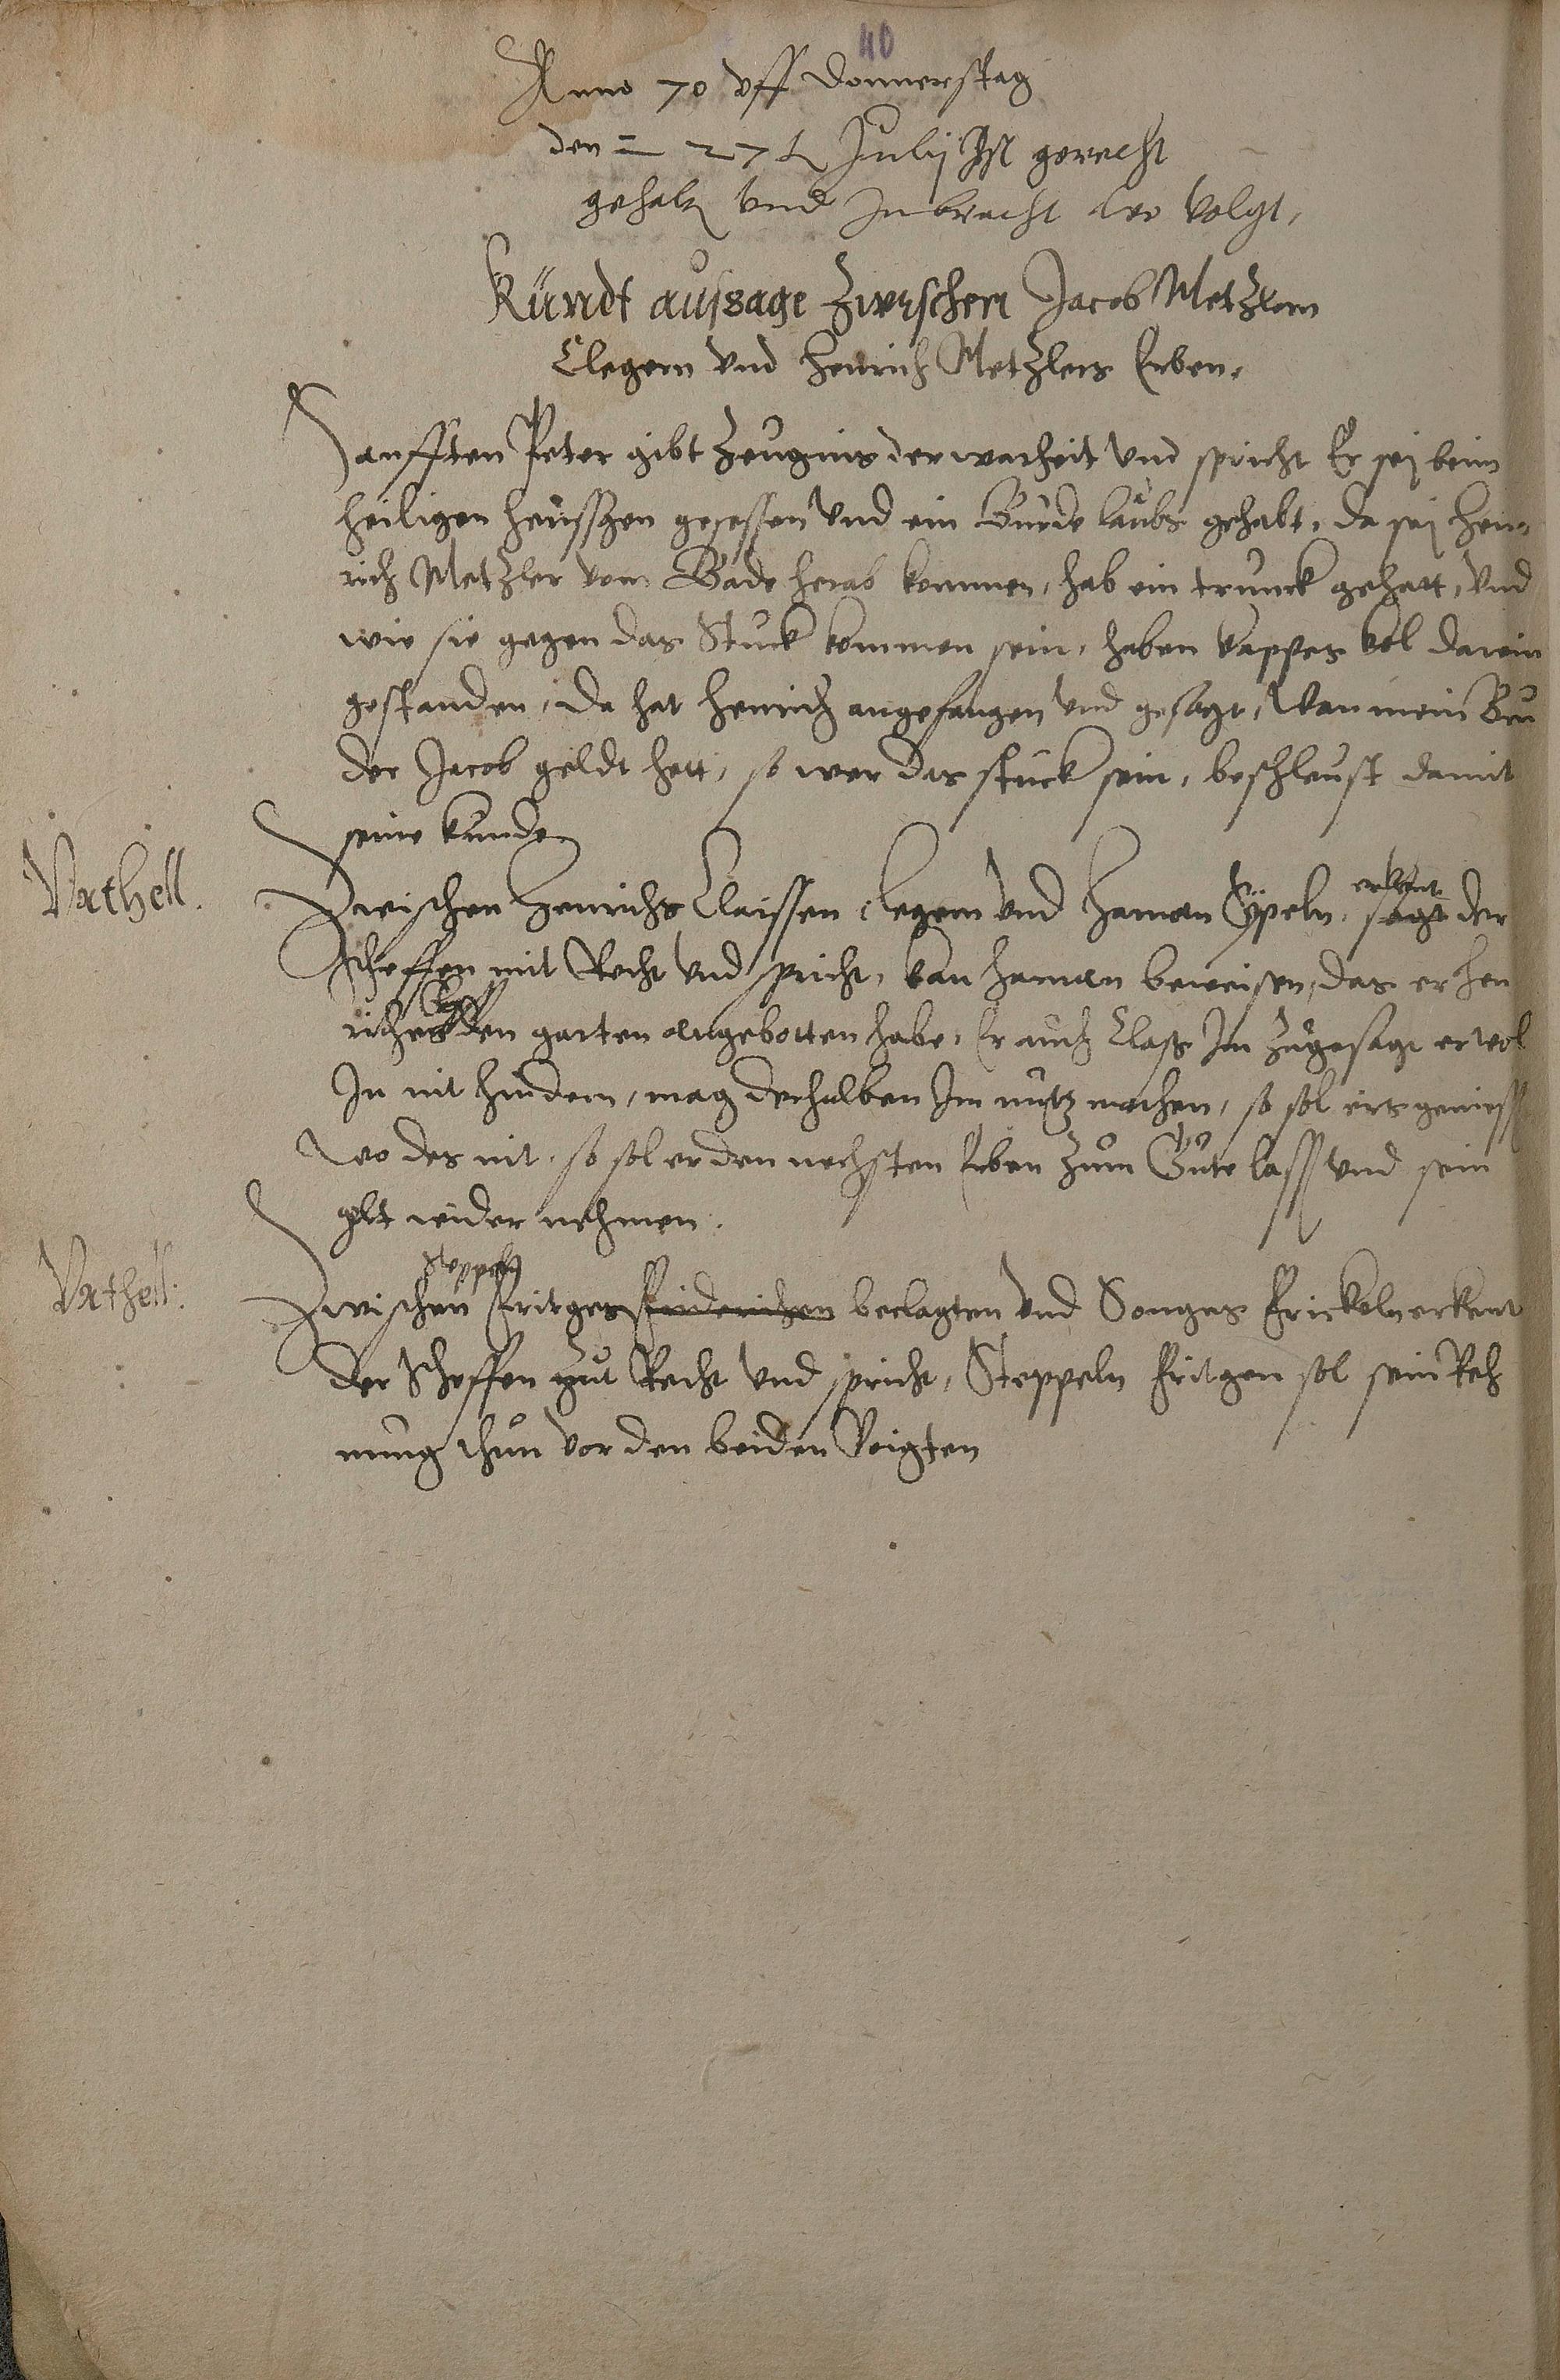 40
Anno 70 vff Donnerstag
den 27ten Julij Ist gericht
gehaltn vnd Inbracht wo volgt,
Kundt aussage Zwischen Jacob Metzlern
Clegern vnd Henrich Metzlers Erben.
Hansften Peter gibt Zeugnis der warheit vnd spricht Er sej beim
heiligen heussgen gesessen vnd ein Burde laubs gehabt, da sej Hen-
rich Metzler vom Bade herab kommen, hab ein trunck gehatt, vnd
wie sie gegen das Stuck kommen sein, haben Cappes kol darein
gestanden, da hat Henrich angefangen vnd gesagt, Wan mein Bru
der Jacob geldt hett, so wer das stuck sein, beschleust damit
seine kunde
Vrthell.
Zwischen Henrichs Claissen clegern vnd Haman Cÿpeln, erkent
sagt der
Scheffen mit Recht vnd spricht, kan Haman beweisen, das er Hen
richen den garten angebotten habe, Er auch Class Im zugesagt er wol
In nit hindern, mag derhalben Im nutz machen, so sol ers geniess
wo des nit, so sol er den nechsten Erben zum Gute lassn vnd sein
gelt wider nehmen.
Vrthell:
Steppeln
Zwischen Fritgen Friderichen beclagten vnd Conges Frickeln erkent
der Scheffen zut Recht vnd spricht, Steppeln Fritgen sol sein Rech
nung thun vor den beiden Voigten